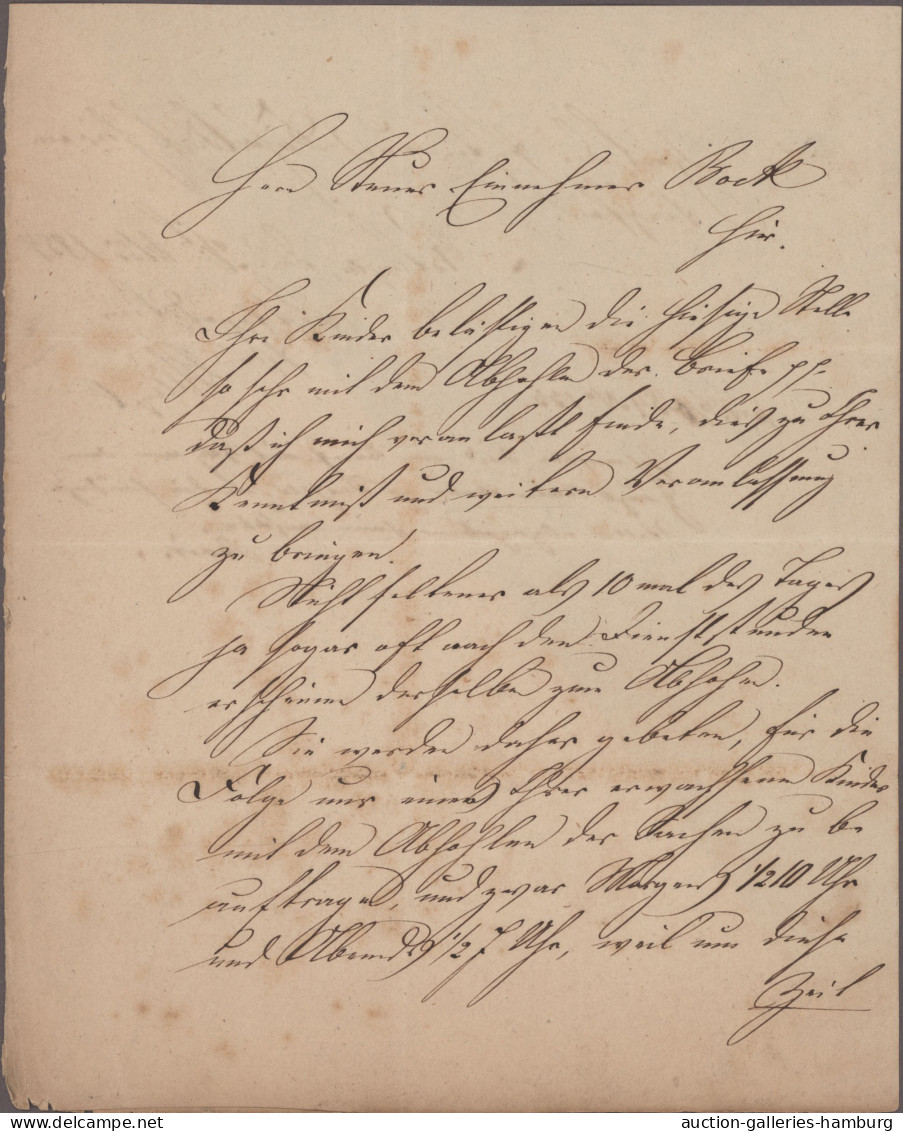 Herrn Steuer Einnehmer Bock
hier.
Ihre Kinder belästigen die hiesige Stelle
so sehr mit dem Abhohlen der Briefe pp
daß ich mich veranlaßt finde, dies zu Ihrer
Kenntniß und weitern Veranlassung
zu bringen.
Nicht seltener als 10 mal des Tages
ja sogar oft nach den Dienststunden
erscheinen derselbe zum Abhohlen.
Sie werden daher gebeten, für die
Folge nur eines Ihrer erwachsenen Kinder
mit dem Abhohlen der Sachen zu be
auftragen, und zwar Morgens 1/2 10 Uhr
und Abends 1/2 7 Uhr, weil um diese
Zeit
auction-galleries-hamburg